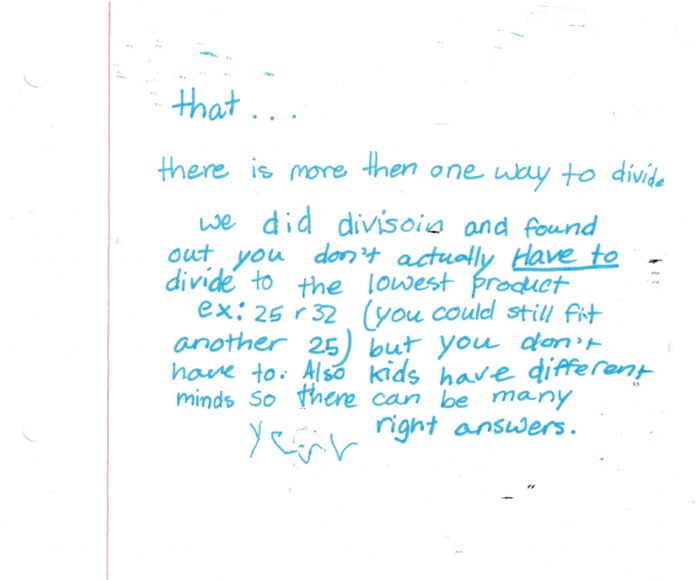 that...
there is more then one way to divide
we did divisoin and found
out you don't actually Have to
divide to the lowest product
ex: 25 r 32 (you could still fit
another 25) but you don't
have to. Also kids have different
minds so there can be many
right answers.